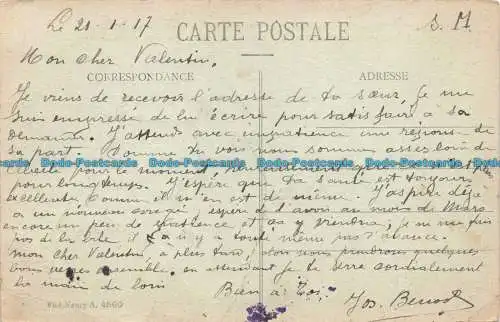 Le 21-1-17
S. M
CARTE POSTALE
Mon cher Valentin,
CORRESPONDANCE
ADRESSE
Je viens de recevoir l'adresse de ta sœur, je me
suis empressé de lui écrire pour satisfaire à sa
demande. J'attends avec impatience une réponse de
sa part. Comme tu vois nous sommes assez loin de
pour le moment
pour longtemps. J'espère que ta santé est toujours
excellente. Comme il m'en est de même. J'aspire déjà
à un nouveau congé espère l'avoir au mois de Mars
encore un peu de patience et ça y viendra, je ne puis
pas de la il n'y a même pas d'avance.
Mon cher Valentin, à plus tard, quelques
bons verres ensemble, en attendant je te serre cordialement
la main de loin.
Bien à toi.
Jos. Benoit
Phot. Neury A. 4560
Dodo-Postcards Dodo-Postcards Dodo-Postcards Dodo-Postcards